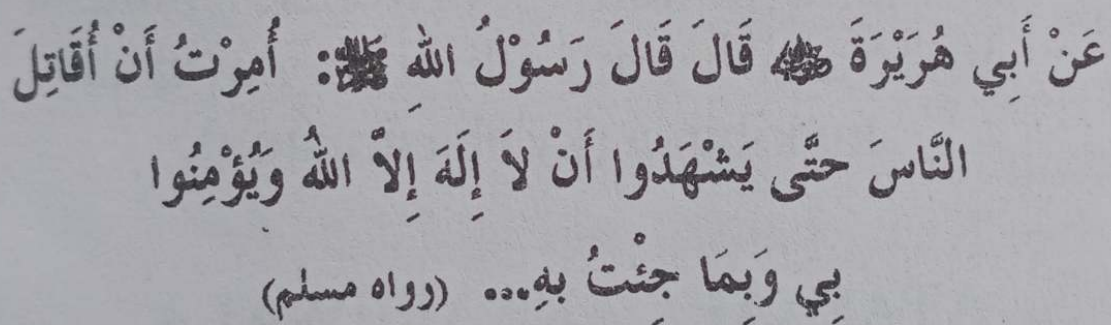 عَنْ أَبِي هُرَيْرَةَ ﷺ قَالَ قَالَ رَسُوْلُ اللهِ ﷺ: أُمِرْتُ أَنْ أُقَاتِلَ
النَّاسَ حَتَّى يَشْهَدُوا أَنْ لاَ إِلَهَ إِلاَّ اللهُ وَيُؤْمِنُوا
بِي وَبِمَا جِئْتُ بِهِ... (رواه مسلم)